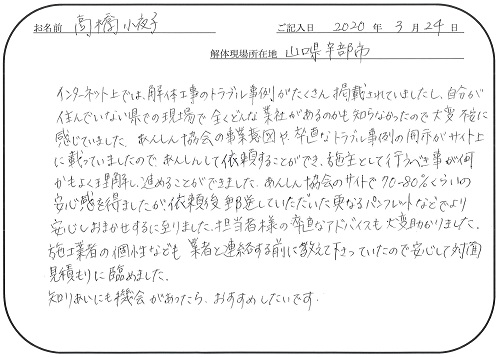 お名前 高橋小夜子 ご記入日 2020 年 3 月 24 日
解体現場所在地 山口県宇部市
インターネット上では、解体工事のトラブル事例がたくさん掲載されていましたし、自分が
住んでいない県での現場で全くどんな業社があるのかも知らなかったので大変不安に
感じていました。あんしん協会の事業意図や、率直なトラブル事例の開示がサイト上
に載っていましたので、あんしんして依頼することができ、施主として行うべき事が何
かもよく理解し、進めることができました。あんしん協会のサイトで70-80%くらいの
安心感を得ましたが、依頼後郵送していただいた更なるパンフレットなどでより
安心しおまかせするに至りました。担当者様の率直なアドバイスも大変助かりました。
施工業者の個性なども業者と連絡する前に教えて下さっていたので安心して対面
見積もりに臨めました。
知りあいにも機会があったら、おすすめしたいです。